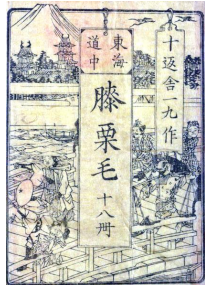 十返舎一九作
東海
道中
膝栗毛
十八冊